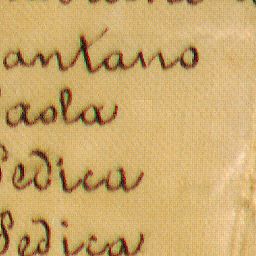 antano
aola
Sedica
Sedica